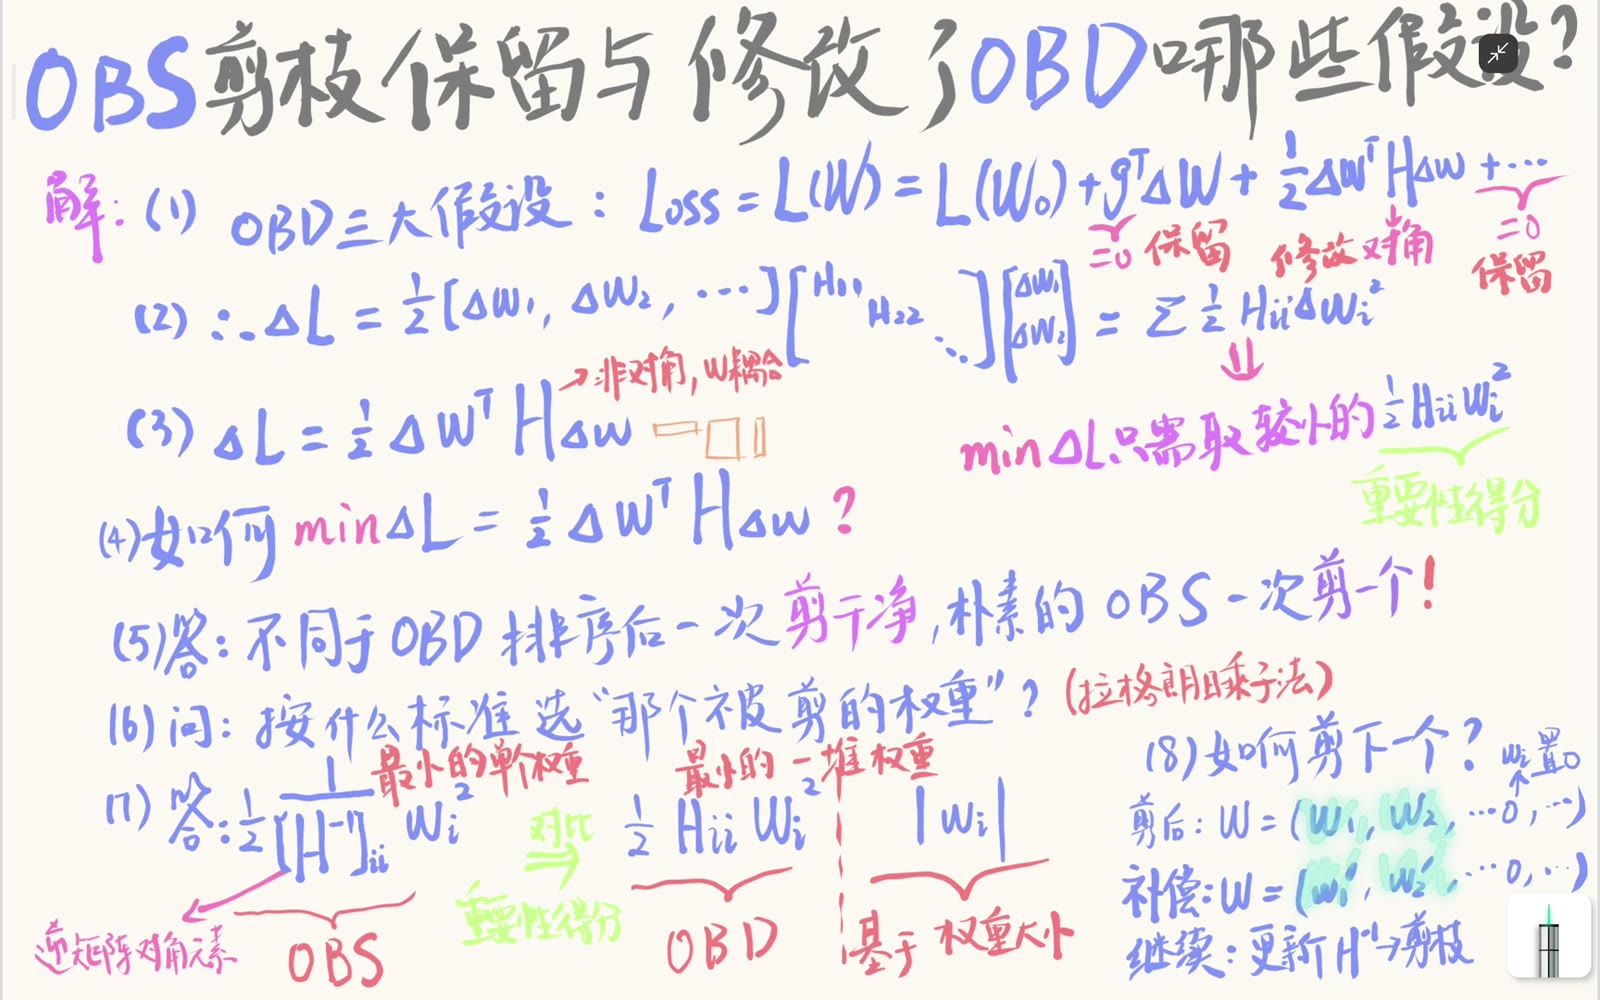 OBS剪枝保留与修改了OBD哪些假设?
解: (1) OBD三大假设: Loss = L(W) = L(W₀) + gᵀΔW + ½ΔWᵀHΔW + ⋯
=0 保留 修改对角 =0 保留
(2) ∴ ΔL = ½[ΔW₁, ΔW₂, ⋯] [H₁₁ H₂₂ ⋱] [ΔW₁ ΔW₂] = Σ ½ HᵢᵢΔWᵢ²
⇓
→非对角, W耦合
(3) ΔL = ½ ΔWᵀ H ΔW
min ΔL 只需取较小的 ½ HᵢᵢWᵢ²
重要性得分
(4) 如何 min ΔL = ½ ΔWᵀ H ΔW ?
(5) 答: 不同于OBD排序后一次剪干净, 朴素的OBS一次剪一个!
(6) 问: 按什么标准选“那个被剪的权重”? (拉格朗日乘子法)
最小的单个权重 最小的一堆权重
(7) 答: ½ 1/[H⁻¹]ᵢᵢ Wᵢ² 对比 ⇒ ½ Hᵢᵢ Wᵢ² |Wᵢ|
重要性得分
逆矩阵对角元素 OBS OBD 基于权重大小
(8) 如何剪下一个?
Wᵢ置0
剪后: W = (W₁, W₂, ⋯0, ⋯)
补偿: W = (W₁', W₂', ⋯0, ⋯)
继续: 更新H⁻¹→剪枝